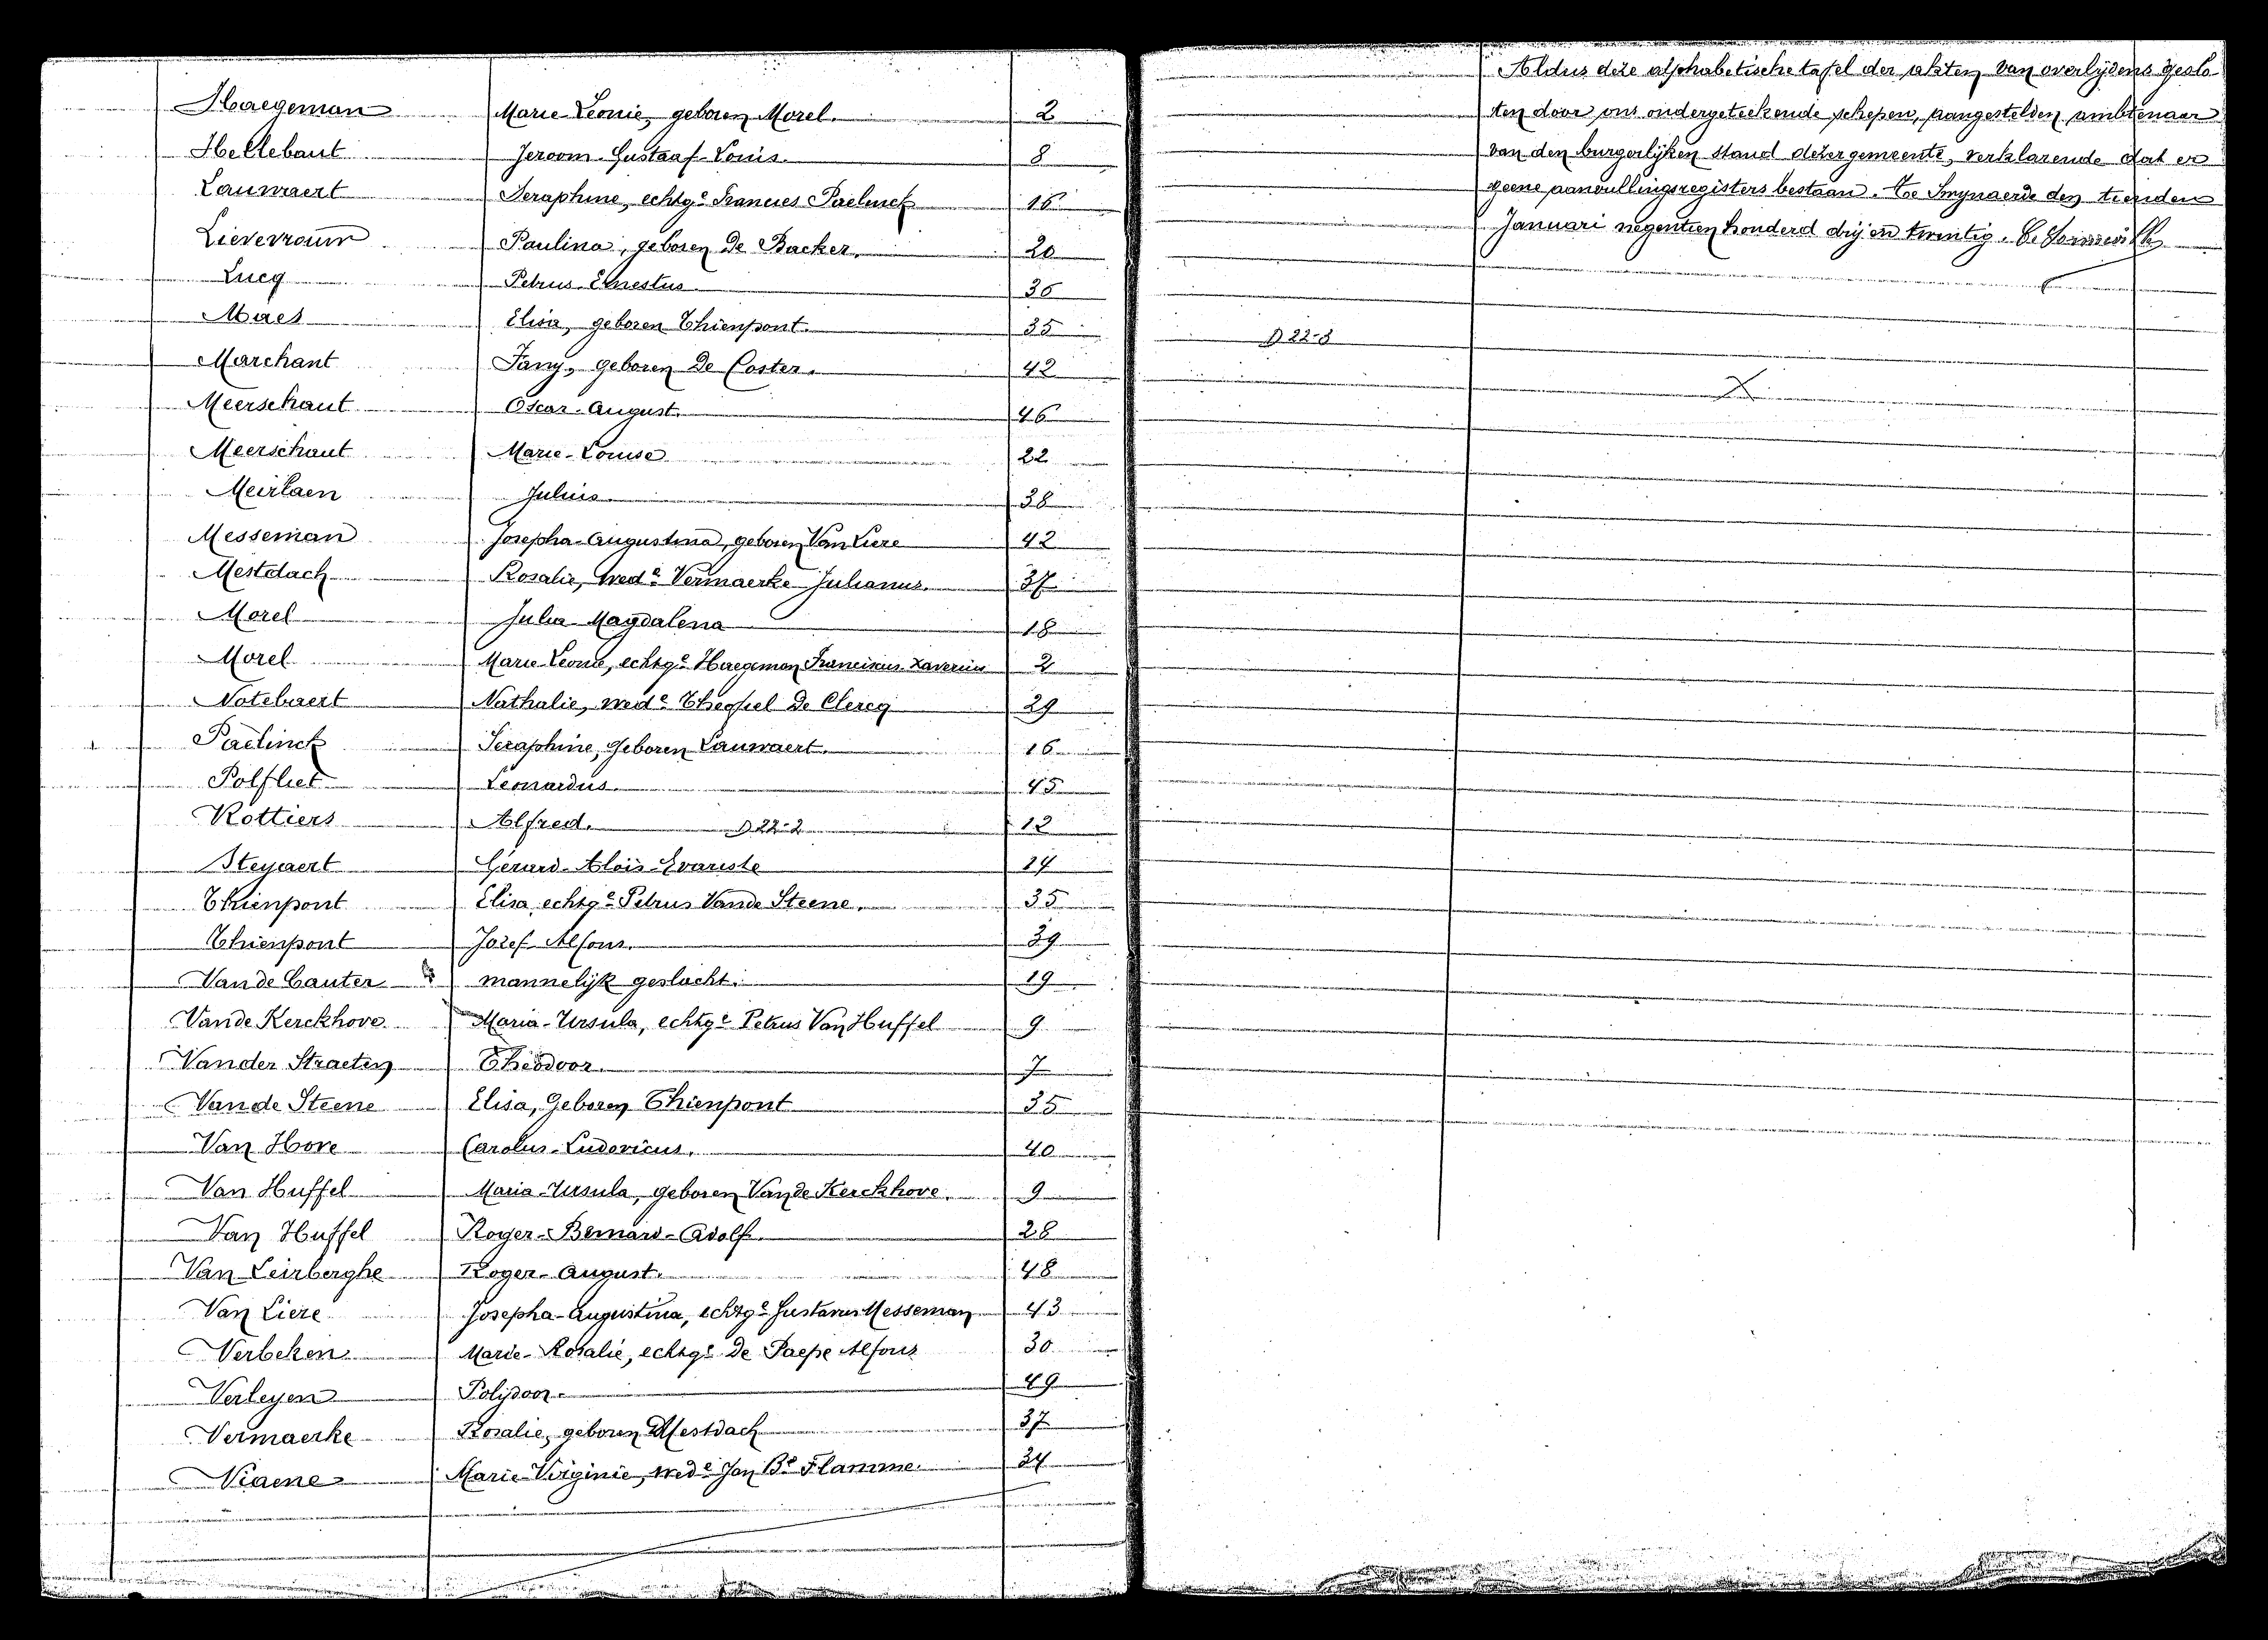 Haegeman Marie-Leonie, geboren Morel. 2
Hellebaut Jeroom-Gustaaf-Louis. 8
Lauwaert Seraphine, echtge Francies Paelinck 16
Lievevrouw Paulina, geboren De Backer. 20
Lucq Petrus-Ernestus 36
Maes Elisa, geboren Thienpont. 35
Marchant Fany, geboren De Coster. 42
Meerschaut Oscar-August. 46
Meerschaut Marie-Louise 22
Meirlaen Julius 38
Messeman Josepha-Augustina, geboren Van Liere 42
Mestdach Rosalie, wede Vermaerke Julianus. 37
Morel Julia Magdalena 18
Morel Marie-Leonie, echtge Haegeman Franciscus-Xaverius 2
Notebaert Nathalie, wede Theophiel De Clercq 29
Paelinck Seraphine, geboren Lauwaert. 16
Polfliet Leonardus. 45
Rottiers Alfred. D 22-2 12
Steyaert Gérard-Alois-Evariste 14
Thienpont Elisa echtge Petrus Vande Steene. 35
Thienpont Jozef Alfons. 39
Van de Cauter mannelijk geslacht. 19
Vande Kerckhove Maria-Ursula, echtge Petrus Van Huffel 9
Vander Straeten Theodoor. 7
Van de Steene Elisa, Geboren Thienpont 35
Van Hove Carolus-Ludovicus. 40
Van Huffel Maria-Ursula, geboren Van de Kerckhove. 9
Van Huffel Roger-Bernard-Adolf. 28
Van Leirberghe Roger-August. 48
Van Liere Josepha-Augustina, echtge Gustavus Messeman 43
Verbeken Marie-Rosalie, echtge De Paepe Alfons 30
Verleyen Polydoor. 49
Vermaerke Rosalie, geboren Mestdach 37
Viaene Marie-Virginie, wede Jan Bte Flamme. 34
Aldus deze alphabetische tafel der akten van overlijdens geslo-
ten door ons ondergeteekende schepen, aangestelden ambtenaar
van den burgerlijken stand dezer gemeente, verklarende dat er
geene aanvullingsregisters bestaan. Toe Smynaerde den tienden
Januari negentien honderd drij en twintig.
D 22-3